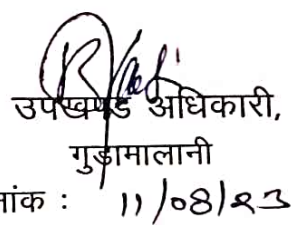 उपखण्ड अधिकारी,
गुड़ामालानी
नांक : 11/08/23